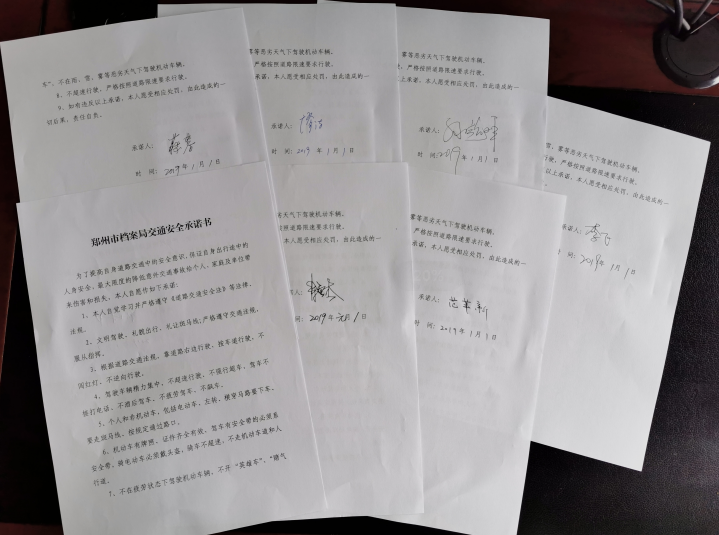 车”，不在雨、雪、雾等恶劣天气下驾驶机动车辆。
8、不超速行驶，严格按照道路限速要求行驶。
9、如有违反以上承诺，本人愿受相应处罚，由此造成的一
切后果，责任自负。
承诺人：
时 间：2019 年 1 月 1
雾等恶劣天气下驾驶机动车辆。
严格按照道路限速要求行驶。
承诺，本人愿受相应处罚，由此造成的一
承诺人：
时 间：2019 年 1 月 1
雾等恶劣天气下驾驶机动车辆。
严格按照道路限速要求行驶。
上承诺，本人愿受相应处罚，由此造成的一
承诺人：
时 间：2019 年 1 月 1
雪、雾等恶劣天气下驾驶机动车辆。
驶，严格按照道路限速要求行驶。
以上承诺，本人愿受相应处罚，由此造成的一
承诺人：李飞
时 间：2019 年 1 月 1 日
郑州市档案局交通安全承诺书
为了提高自身道路交通中的安全意识，保证自身出行途中的
人身安全，最大限度的降低意外交通事故给个人、家庭及单位带
来伤害和损失，本人自愿作如下承诺：
1、本人自觉学习并严格遵守《道路交通安全法》等法律、
法规。
2、文明驾驶、礼貌出行、礼让斑马线，严格遵守交通法规，
服从指挥。
3、根据道路交通法规，靠道路右边行驶，按车道行驶，不
闯红灯，不逆向行驶。
4、驾驶车辆精力集中，不超速行驶，不强行超车，驾车不
拨打电话，不酒后驾车，不疲劳驾车，不飙车。
5、个人和非机动车，包括电动车，左转、横穿马路要下车，
要走斑马线，按规定通过路口。
6、机动车有牌照、证件齐全有效，驾车有安全带的必须系
安全带，骑电动车必须戴头盔，骑车不超速，不走机动车道和人
行道。
7、不在疲劳状态下驾驶机动车辆，不开“英雄车”、“赌气
等恶劣天气下驾驶机动车辆。
按照道路限速要求行驶。
本人愿受相应处罚，由此造成的一
诺人：
间：2019 年 元月 1 日
雾等恶劣天气下驾驶机动车辆。
严格按照道路限速要求行驶。
承诺，本人愿受相应处罚，由此造成的一
承诺人：
时 间：2019 年 1 月 1 日